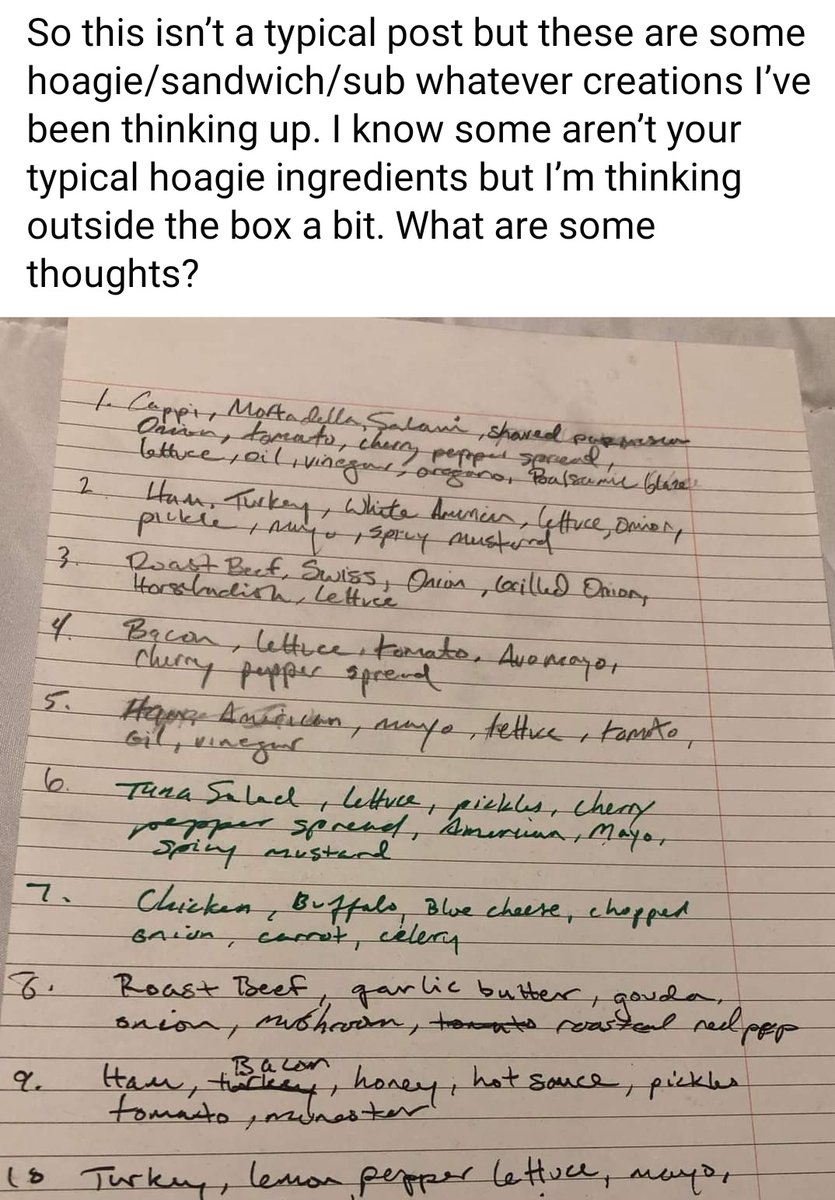 So this isn’t a typical post but these are some
hoagie/sandwich/sub whatever creations I’ve
been thinking up. I know some aren’t your
typical hoagie ingredients but I’m thinking
outside the box a bit. What are some
thoughts?
1. Cappi, Mortadella, Salami, shaved
Onion, tomato, cherry pepper spread,
lettuce, oil, vinegar, oregano, Balsamic Glaze
2. Ham, Turkey, White American, lettuce, onion,
pickle, mayo, spicy mustard
3. Roast Beef, Swiss, Onion, Grilled Onion,
lettuce
4. Bacon, lettuce, tomato, Avo mayo,
cherry pepper spread
5. Ham, American, mayo, lettuce, tomato,
oil, vinegar
6. Tuna Salad, lettuce, pickles, cherry
pepper spread, American, Mayo,
spicy mustard
7. Chicken, Buffalo, Blue cheese, chopped
onion, carrot, celery
8. Roast Beef, garlic butter, gouda,
onion, mushroom, tomato roasted red pep
Bacon
9. Ham, turkey, honey, hot sauce, pickles
tomato, munester
10 Turkey, lemon pepper lettuce, mayo,